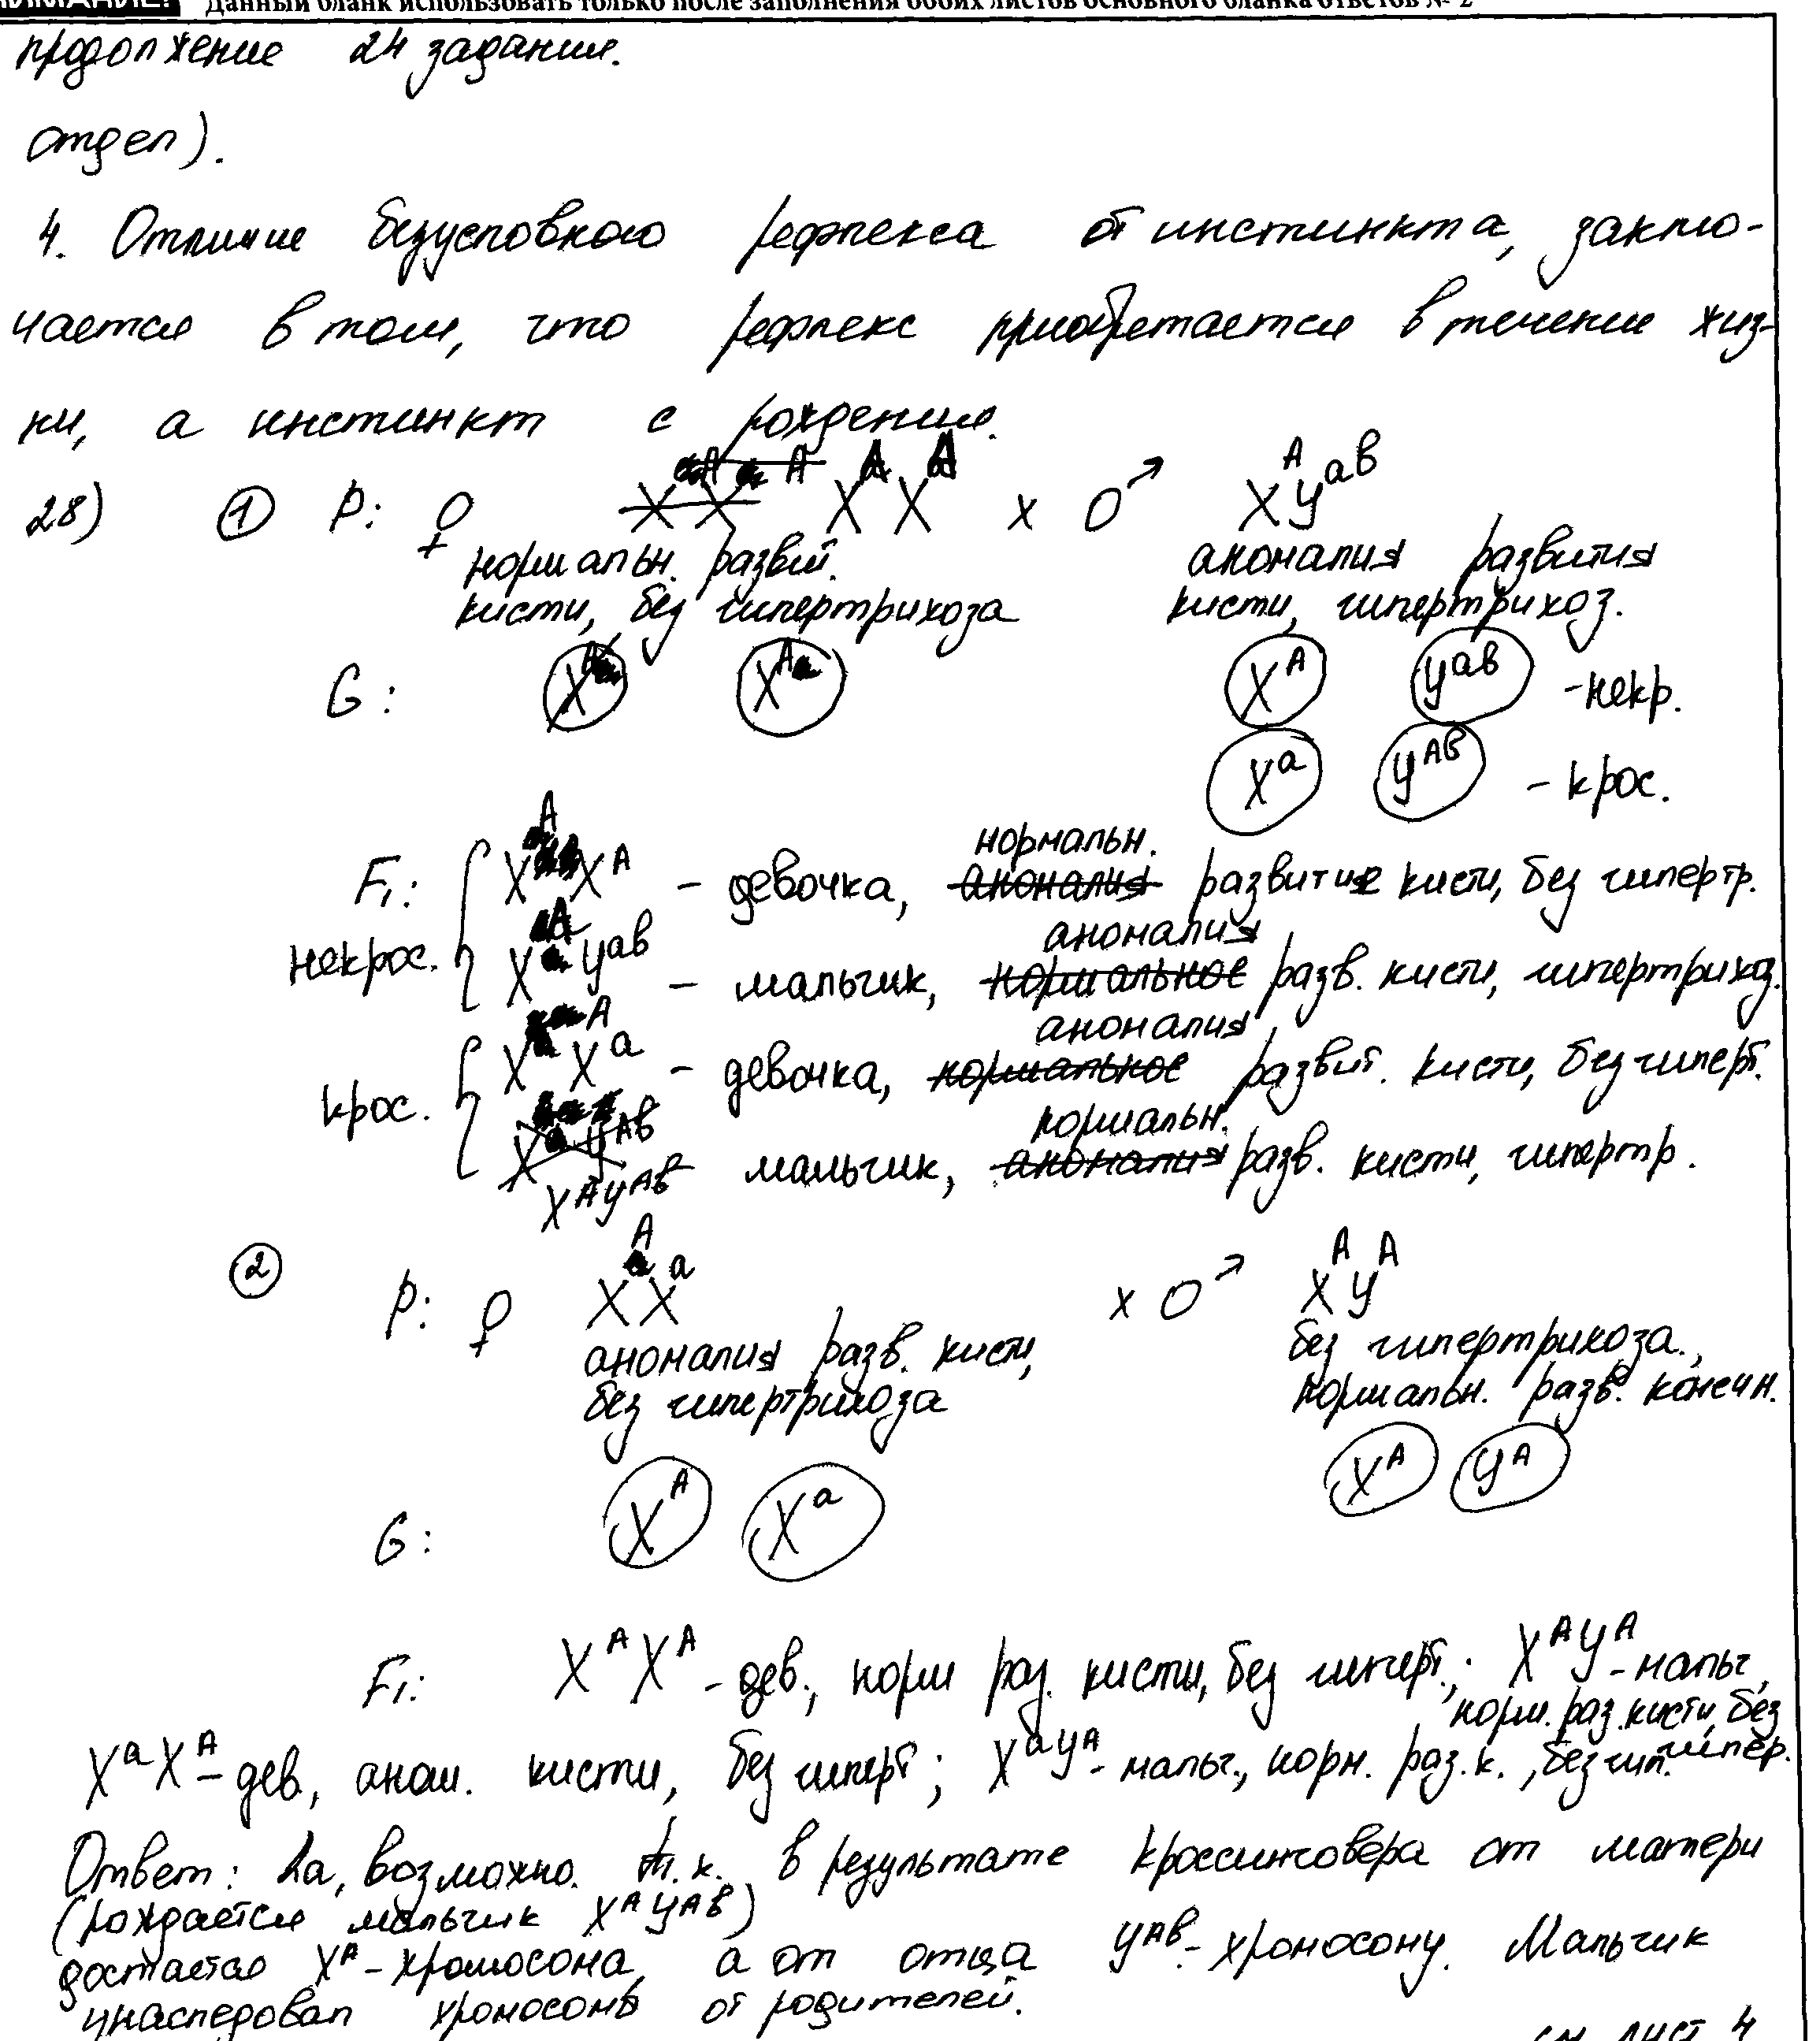 Данный бланк использовать только после заполнения обоих листов основного бланка ответов № 2
продолжение 24 задания.
отдел).
4. Отличие безусловного рефлекса от инстинкта, заклю-
чается в том, что рефлекс приобретается в течении жиз-
ни, а инстинкт с рождения.
28) ① P: ♀ X^A X^A x ♂ X^A Y^ав
нормальн. развит. аномалия развития
кисти, без гипертрихоза кисти, гипертрихоз.
G: X^A X^A X^A Y^ав -некр.
X^a Y^Ав - крос.
нормальн.
F₁: X^A X^A - девочка, аномалия развитие кисти, без гипертр.
аномалия
некрос. X^A Y^ав - мальчик, нормальное разв. кисти, гипертрихоз.
аномалия
X^A X^a - девочка, нормальное развит. кисти, без гиперт.
крос.
нормальн.
X Y^Ав - мальчик, аномалия разв. кисти, гипертр.
X^A Y^Ав
② P: ♀ X^A X^a x ♂ X^A Y^A
аномалия разв. кисти, без гипертрихоза.,
без гипертрихоза нормальн. разв. конечн.
G: X^A X^a X^A Y^A
F₁: X^A X^A - дев., норм раз. кисти, без гиперт.; X^A Y^A - мальч,
норм. раз. кисти, без гипер.
X^a X^A - дев, аном. кисти, без гиперт; X^a Y^A - мальч., норм. раз. к., без гип.
Ответ: Да, возможно. т.к. в результате кроссинговера от матери
(рождается мальчик X^A Y^Ав)
достаётся X^A - хромосома, а от отца Y^Ав - хромосому. Мальчик
унаследовал хромосомы от родителей.
см лист 4